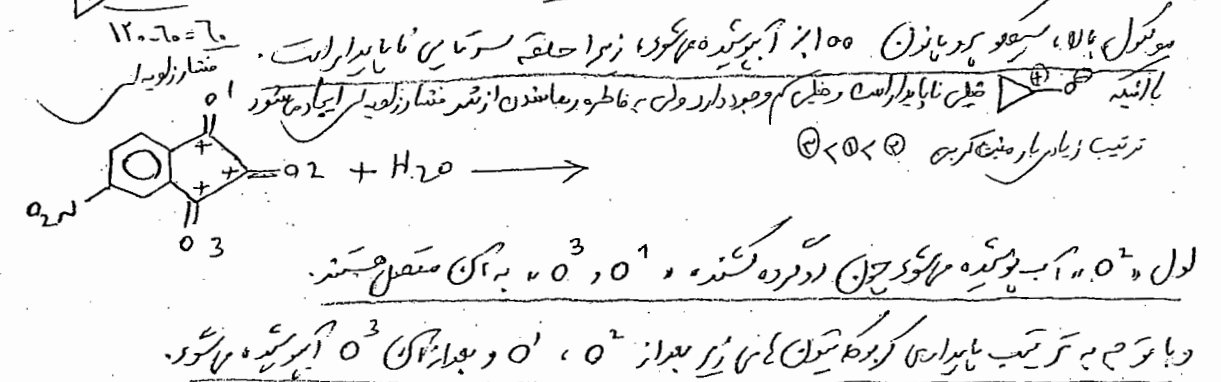 ۱۲۰-۶۰=۶۰
فشار زاویه ای
مولکول بالا، سیکلو پروپانون ۱۰۰٪ آبپوشیده می‌شود، زیرا حلقه سه تایی ناپایدار است.
با اینکه ⊕ O⊖ خیلی ناپایدار است و خیلی کم وجود دارد ولی به خاطر رها شدن از شر فشار زاویه ای ایجاد می‌شود
ترتیب زیادی بار مثبت کربن ③<①<②
O 1
O2 + H2O →
O2N
O 3
اول "O2" آب پوشیده می‌شود چون دو گروه کشنده "O1 و O3" به آن متصل هستند.
و با توجه به ترتیب پایداری کربوکاتیون های زیر بعد از O2، O1 و بعد از آن O3 آبپوشیده می‌شود.